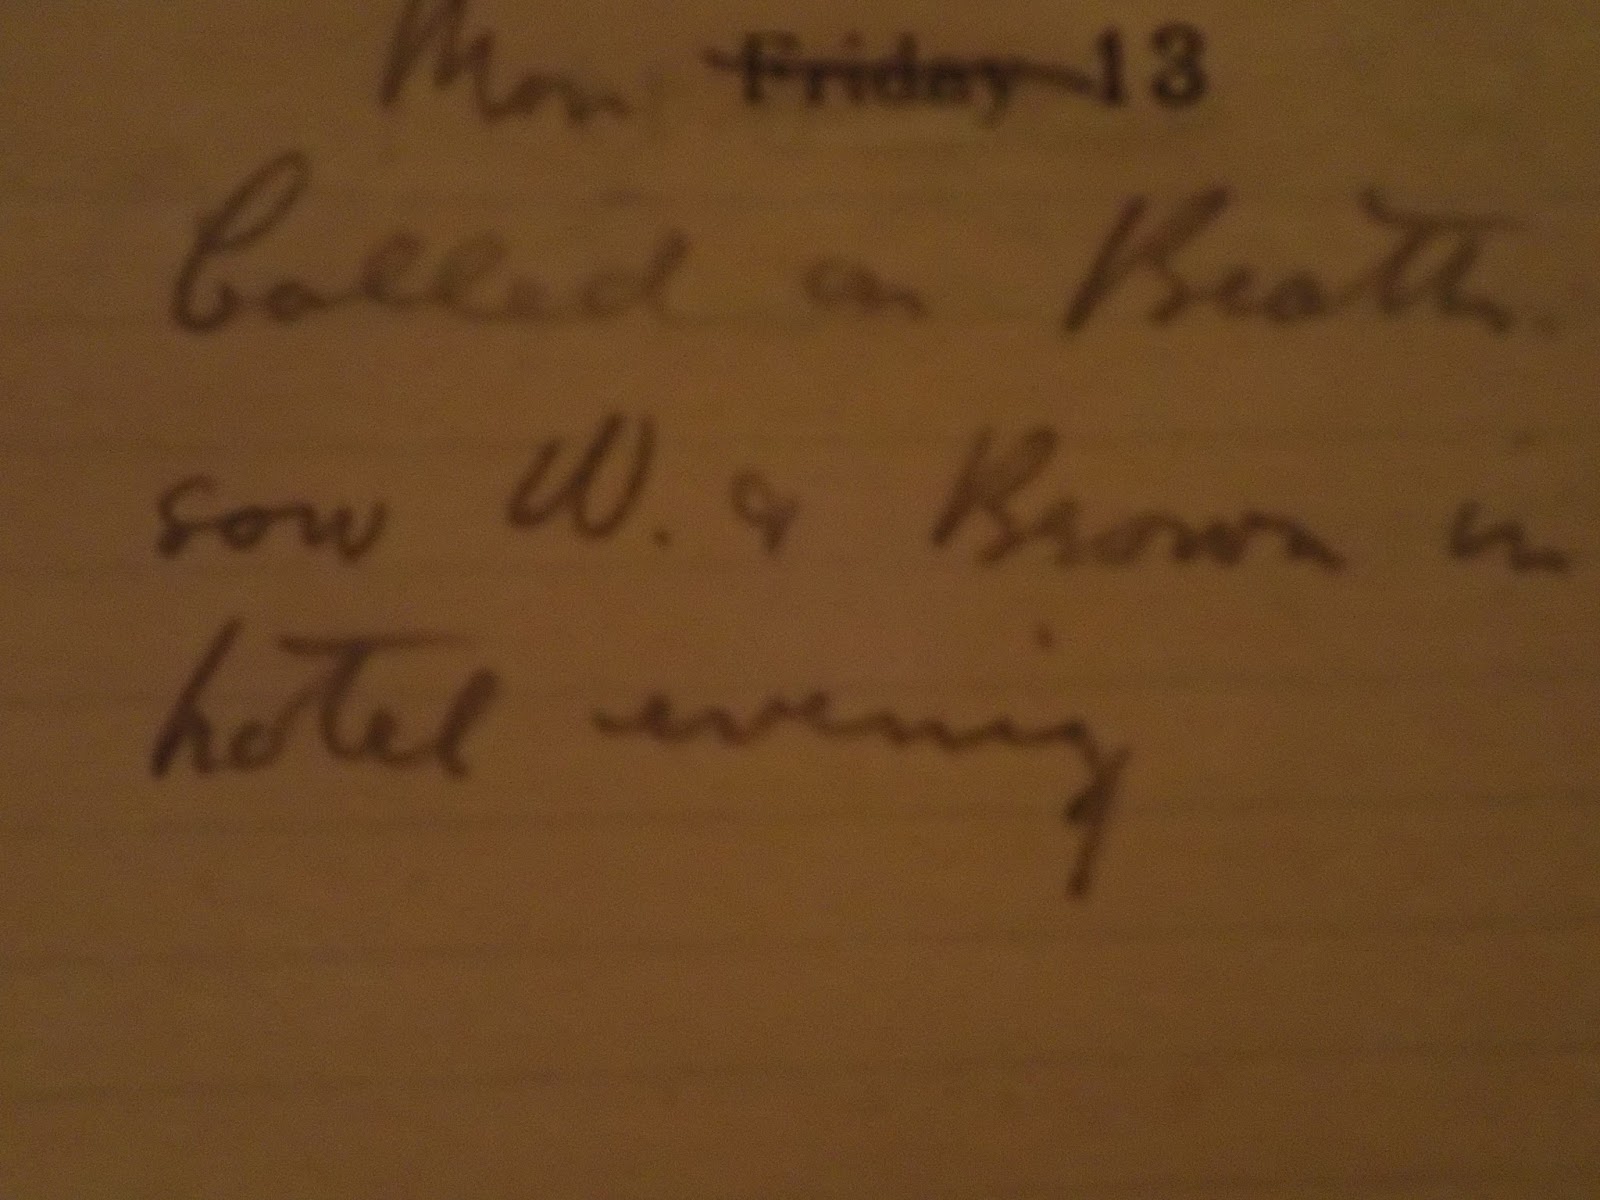 Mon Friday 13
Called on Beath.
saw W. & Brown in
hotel evening